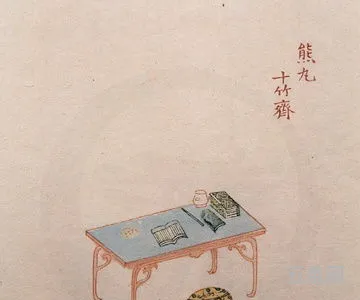 熊丸
十竹齋